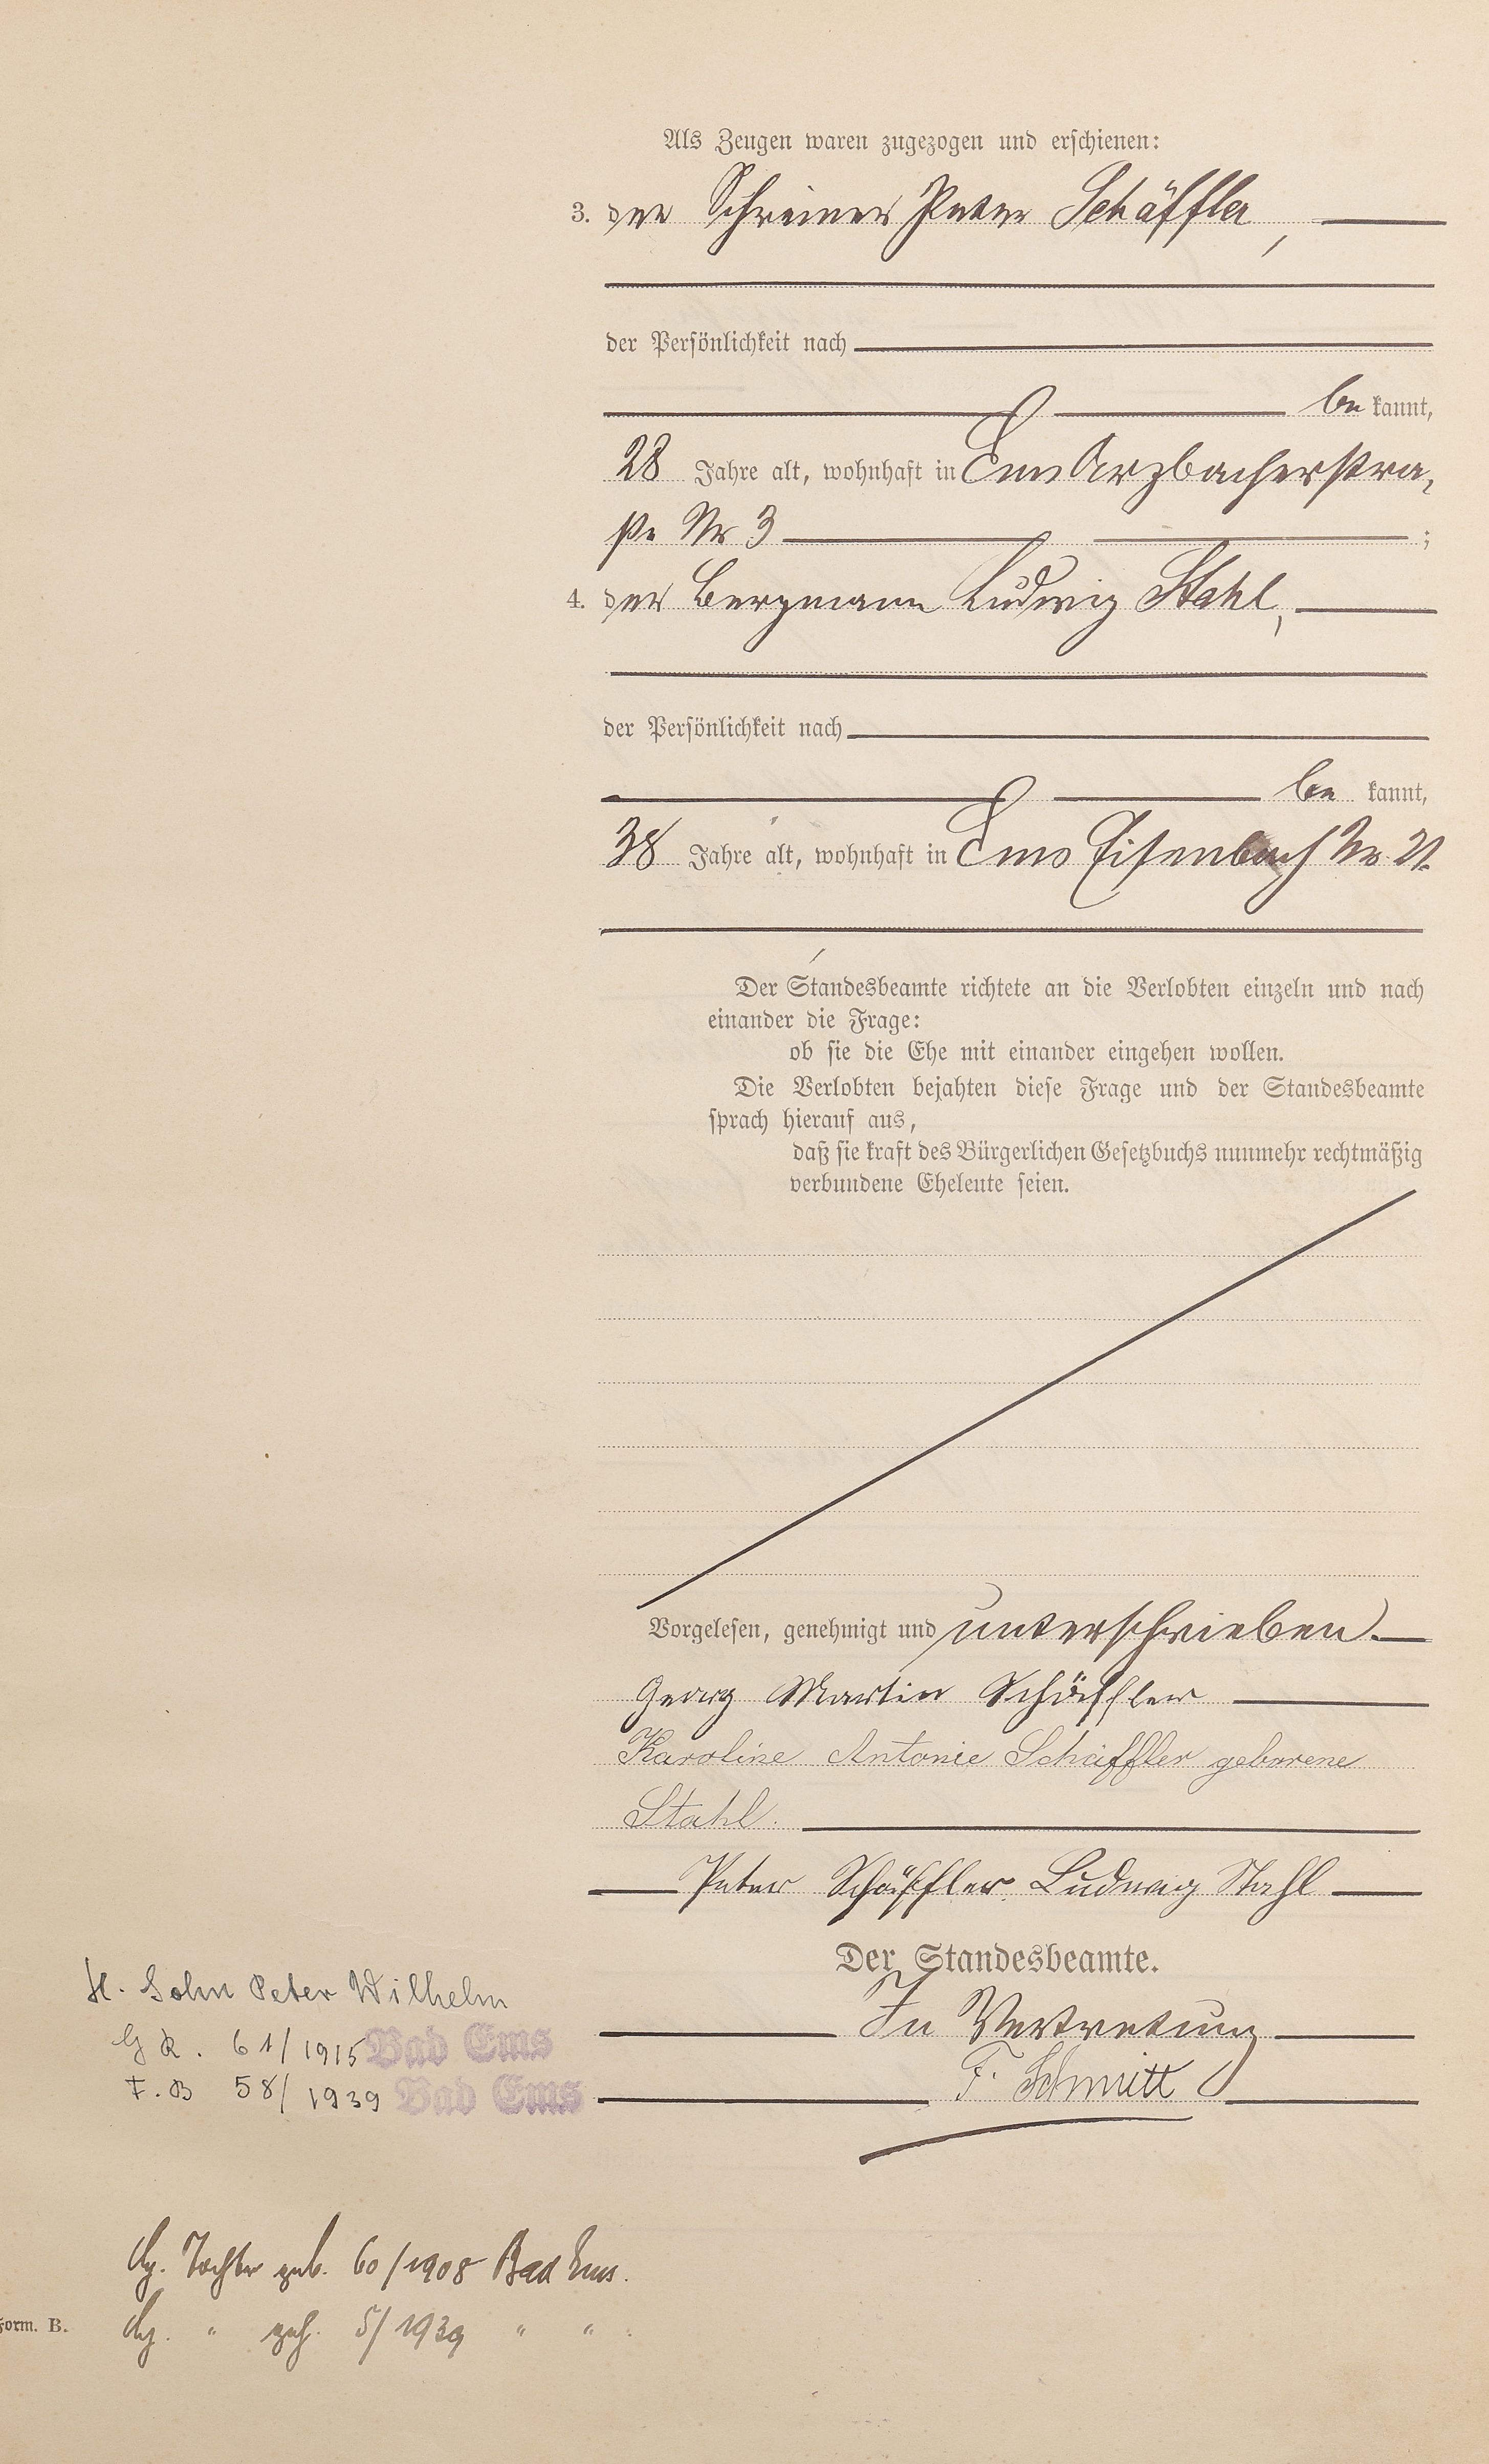 Als Zeugen waren zugezogen und erschienen:
3. der Schreiner Peter Schäffler,
der Persönlichkeit nach
be kannt,
28 Jahre alt, wohnhaft in Ems Arzbacherstra-
ße Nr 3 ;
4. der Bergmann Ludwig Stahl,
der Persönlichkeit nach
be kannt,
38 Jahre alt, wohnhaft in Ems Eisenbach Nr 21.
Der Standesbeamte richtete an die Verlobten einzeln und nach
einander die Frage:
ob sie die Ehe mit einander eingehen wollen.
Die Verlobten bejahten diese Frage und der Standesbeamte
sprach hierauf aus,
daß sie kraft des Bürgerlichen Gesetzbuchs nunmehr rechtmäßig
verbundene Eheleute seien.
Vorgelesen, genehmigt und unterschrieben.
Georg Martin Schäffler
Karoline Antonie Schäffler geborene
Stahl.
Peter Schäffler. Ludwig Stahl
Der Standesbeamte.
In Vertretung
F. Schmitt
H. Sohn Peter Wilhelm
G R. 61/1915 Bad Ems
F. B 58/1939 Bad Ems
Tochter geb. 60/1908 Bad Ems.
" geh. 5/1939 " "
Form. B.